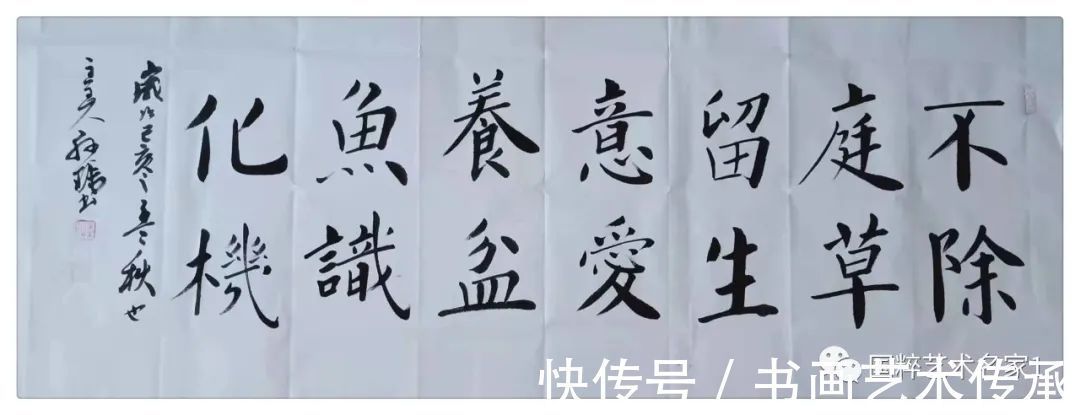 不除
庭草
留生
意愛
養盆
魚識
化機
歲次己亥秋也
书
国粹艺术名家1
快传号 / 书画艺术传承